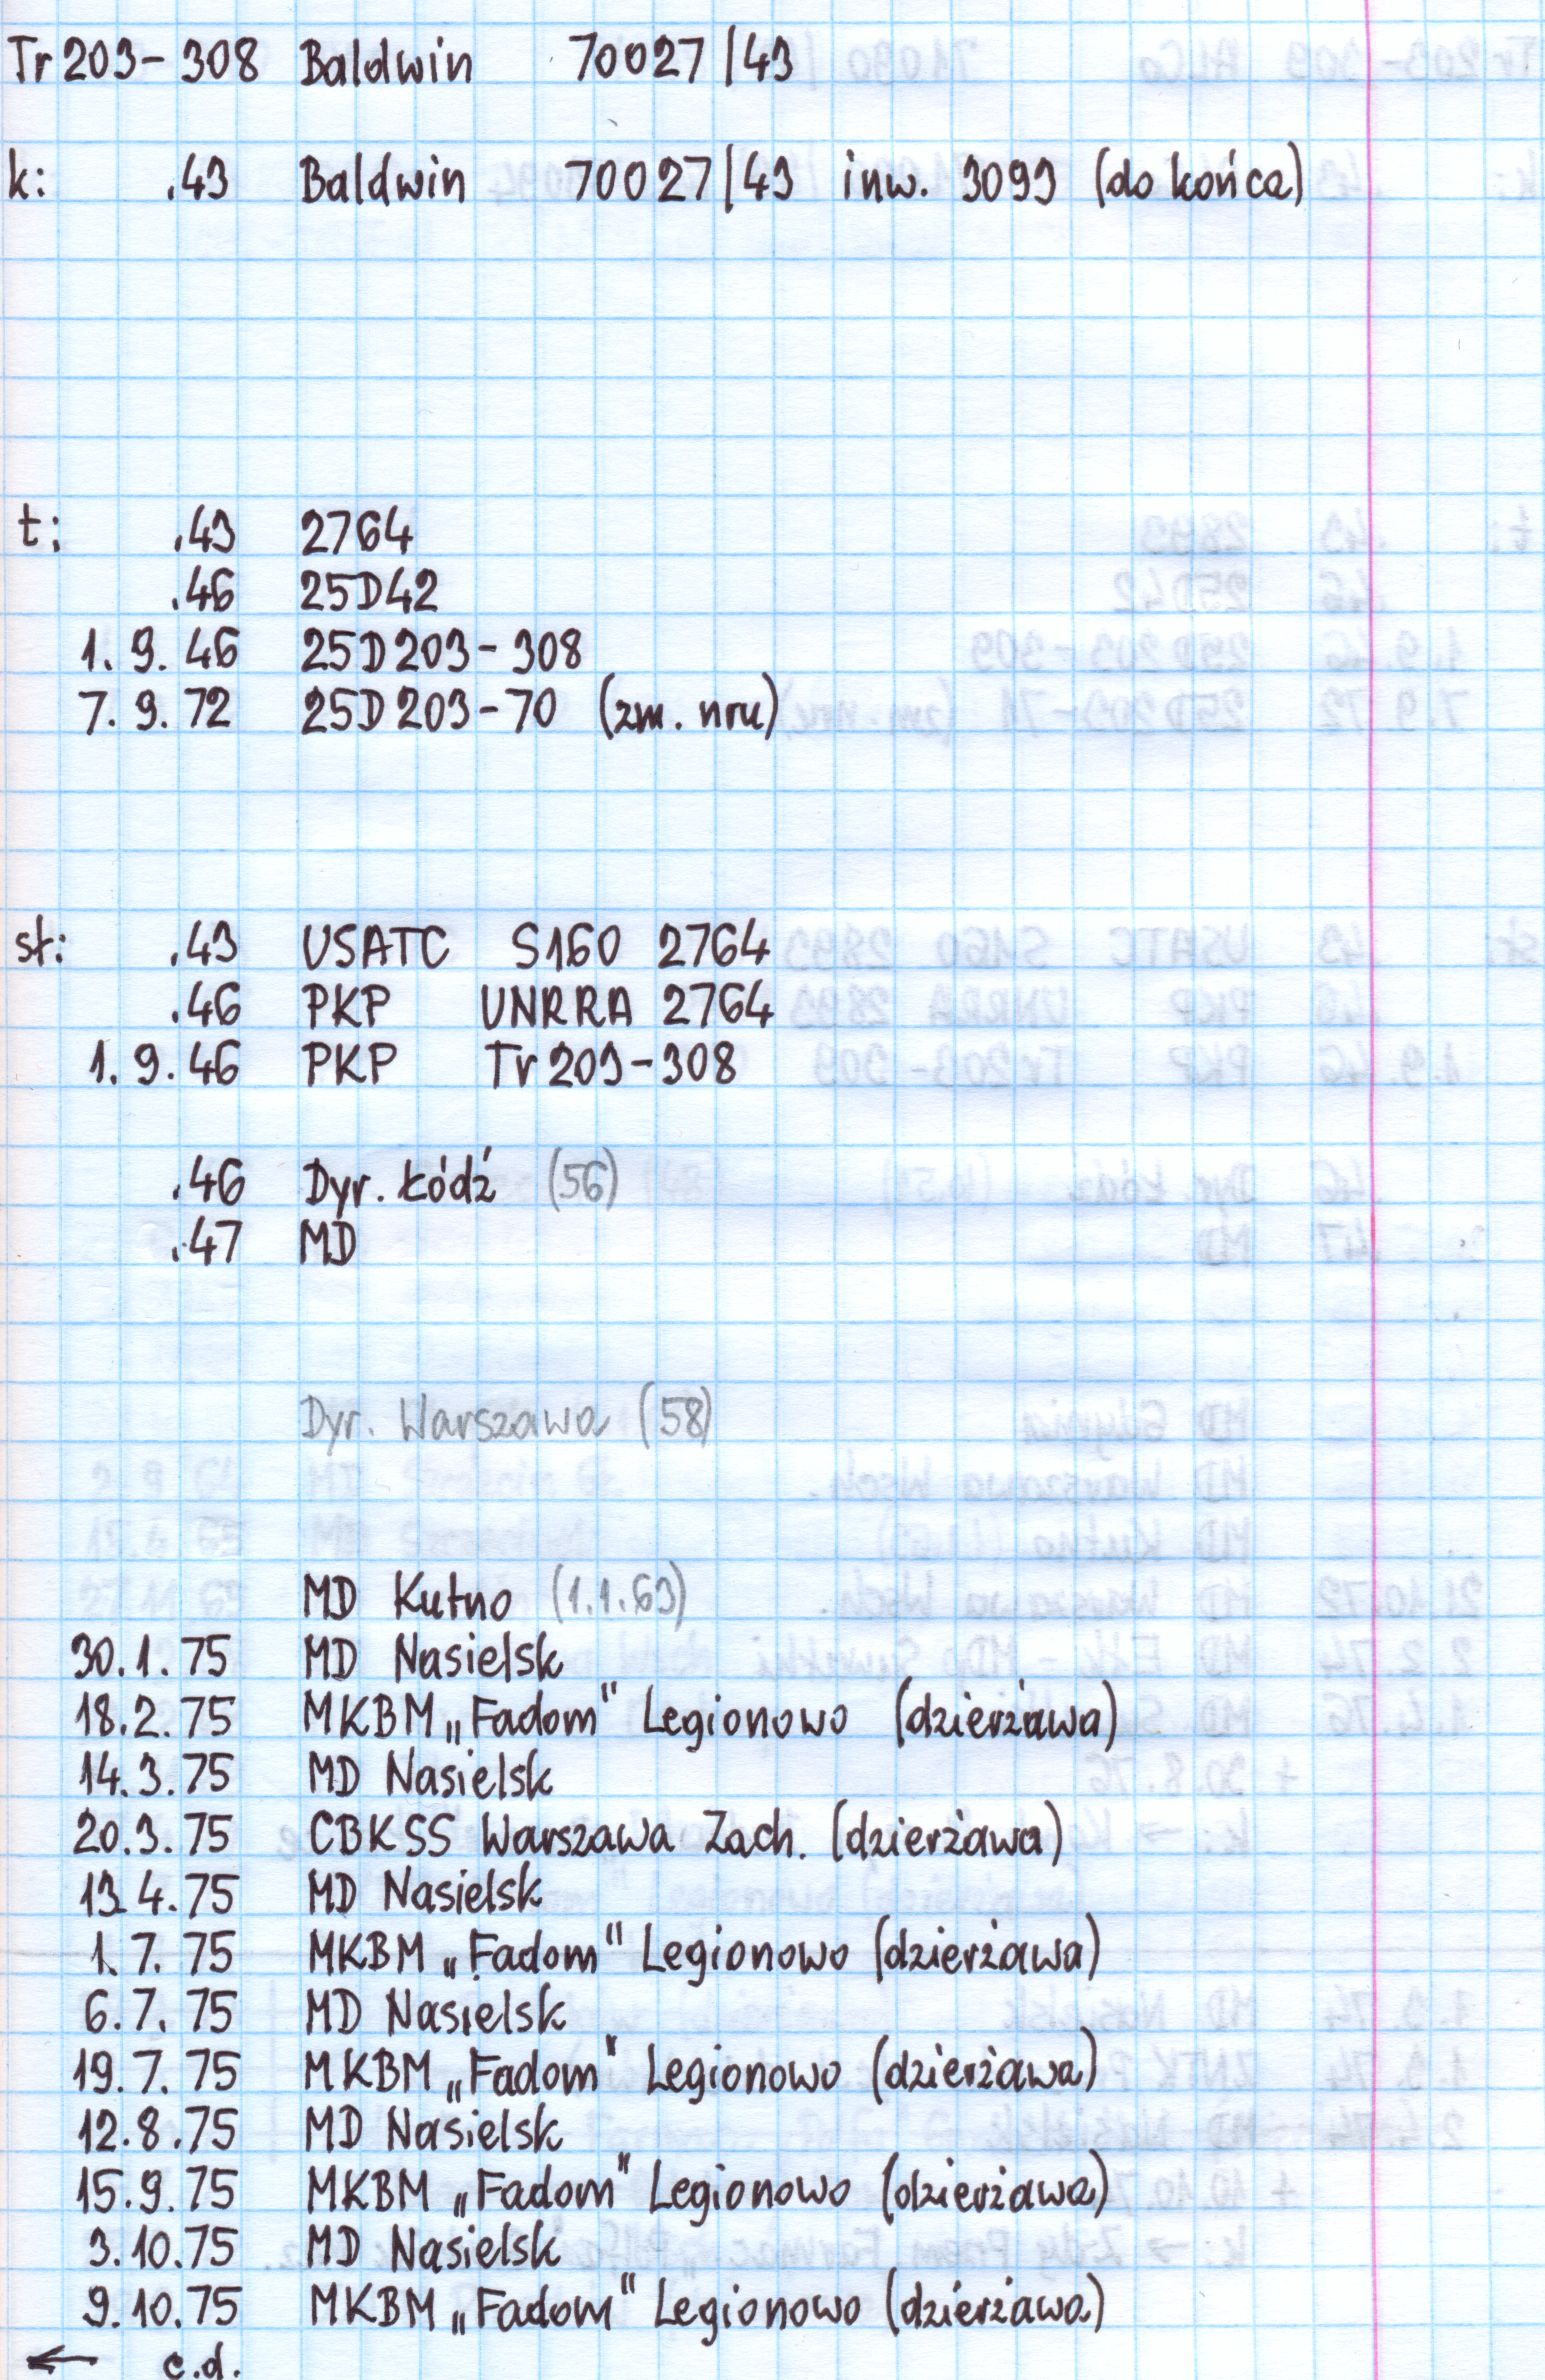 Tr 203-308 Baldwin 70027/43
k: .43 Baldwin 70027/43 inw. 3093 (do końca)
t: .43 2764
.46 25D42
1.9.46 25D203-308
7.9.72 25D203-70 (zm. nru)
st: .43 USATC S160 2764
.46 PKP UNRRA 2764
1.9.46 PKP Tr203-308
.46 Dyr. Łódź (56)
.47 MD
Dyr. Warszawa (58)
MD Kutno (1.1.63)
30.1.75 MD Nasielsk
18.2.75 MKBM „Fadom" Legionowo (dzierżawa)
14.3.75 MD Nasielsk
20.3.75 CBKSS Warszawa Zach. (dzierżawa)
13.4.75 MD Nasielsk
1.7.75 MKBM „Fadom" Legionowo (dzierżawa)
6.7.75 MD Nasielsk
19.7.75 MKBM „Fadom" Legionowo (dzierżawa)
12.8.75 MD Nasielsk
15.9.75 MKBM „Fadom" Legionowo (dzierżawa)
3.10.75 MD Nasielsk
9.10.75 MKBM „Fadom" Legionowo (dzierżawa)
← c.d.